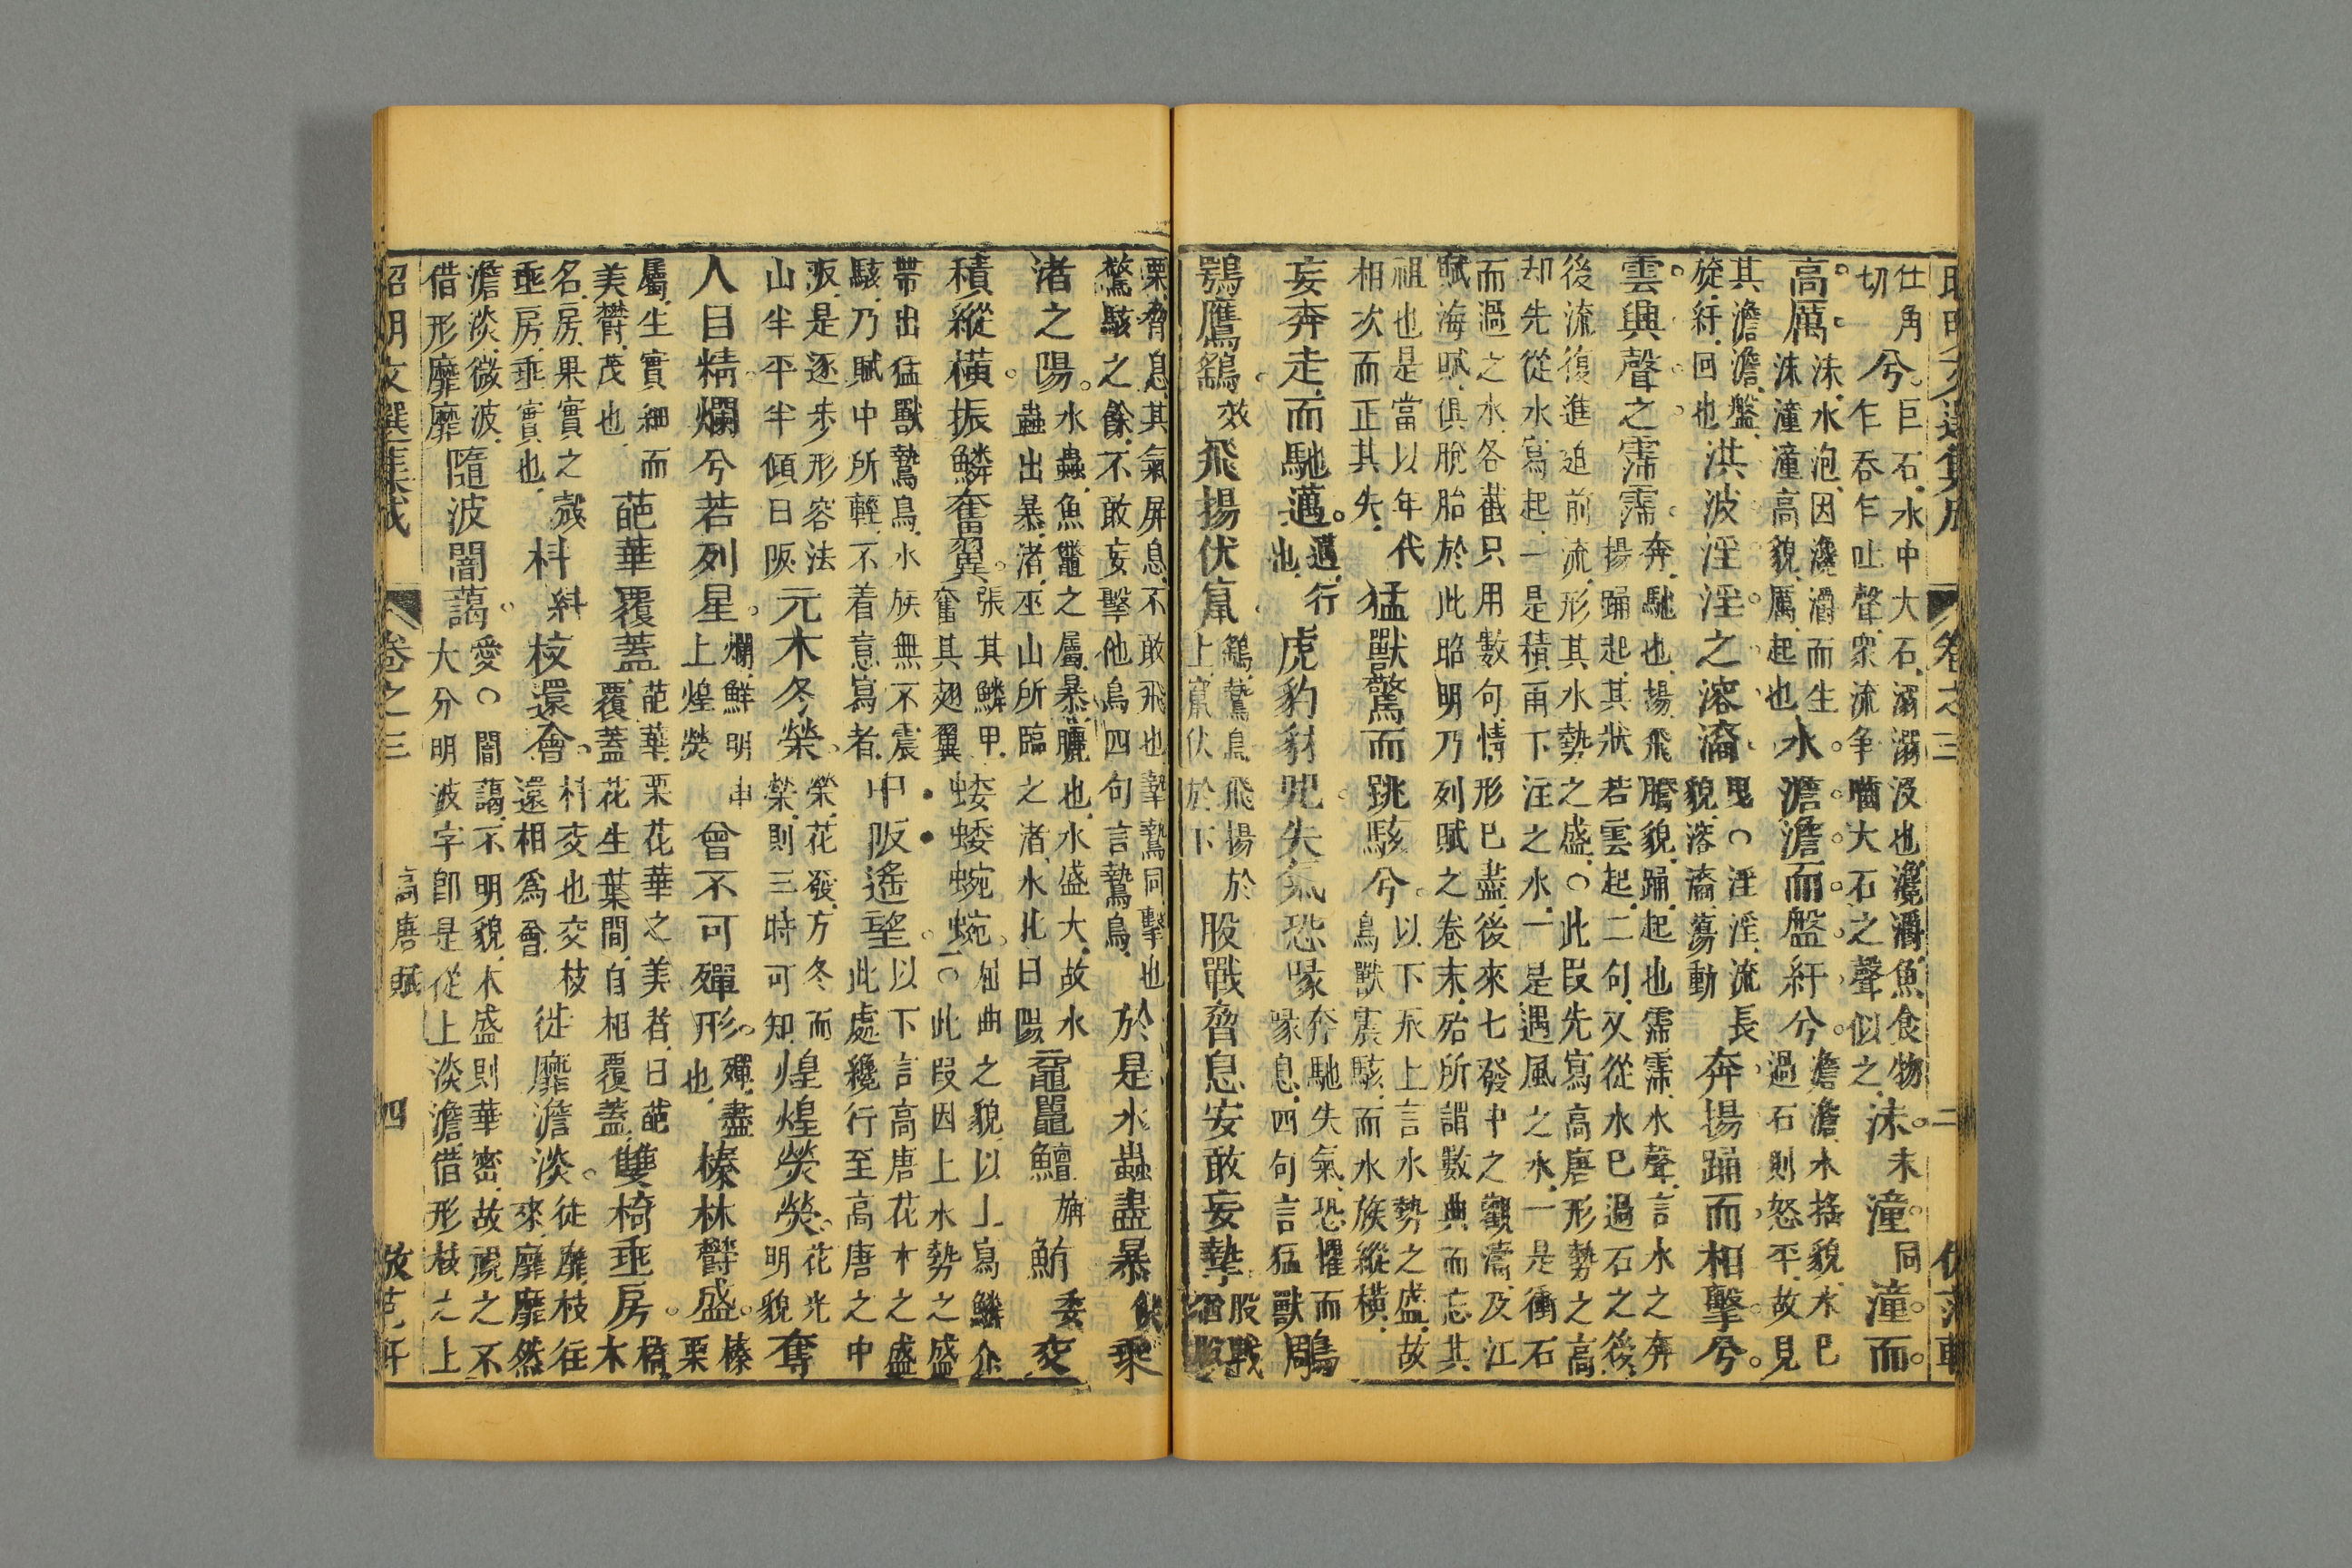 昭明文選集成 卷之三 二
仕角切兮。巨石，水中大石，溺溺没也，瀺灂，魚食物乍吞乍吐聲，衆流争嚙大石之聲似之，沫。未潼。同潼。而。
高。厲。沫，水泡，因瀺灂而生沫潼潼高貌，厲，起也水。澹。澹。而。盤。紆。兮。澹澹，水搖貌，水已過石則怒平，故見
其澹澹，盤旋，紆，回也洪波淫淫之溶㵝，曳○淫淫，流長貌，溶㵝，蕩動奔揚踊而相擊兮。
雲興聲之霈霈。奔，馳也，揚，飛騰貌，踊，起也霈霈，水聲，言水之奔揚踊起，其狀若雲起，二句，又從水已過石之後，
後流復進迫前流，形其水勢之盛，○此段先寫高唐形勢之高却先從水寫起，一是積雨下注之水，一是遇風之水，一是衝石
而過之水，各截只用數句，情形已盡，後來七發中之觀濤，及江賦海賦，俱脫胎於此昭明乃列賦之卷末，殆所謂數典而忘其
祖也是當以年代相次而正其失，猛獸驚而跳駭兮。以下承上言水勢之盛，故鳥獸震駭，而水族縱橫，
妄奔走，而馳邁。邁，行也，虎豹豺兕，失氣恐喙奔馳失氣，恐懼而喙息，四句言猛獸鵰
鶚鷹鷂。效飛揚伏竄。鷂，鷙鳥飛揚於上，竄伏於下股戰脅息安敢妄摯股戰猶股戰
栗，脅息，其氣屏息，不敢飛也摯鷙同擊也驚駭之餘，不敢妄擊他鳥四句言鷙鳥，於是水蟲盡暴乘
渚之陽。水蟲，魚鼈之屬，暴曬也，水盛大，故水蟲出暴，渚，巫山所臨之渚，水北曰陽黿鼉鱣旃鮪委交
積縱橫。振鱗奮翼。張其鱗甲奮其翅翼蜲蜲蜿蜿。屈曲之貌，以上寫鱗介○此段因上水勢之盛
帶出猛獸鷙鳥，水族無不震駭，乃賦中所輕，不着意寫者，中阪遙望。以下言高唐花木之盛此處纔行至高唐之中
阪，是逐步形容法山半平半傾曰阪元木冬榮。榮，花發，方冬而榮，則三時可知，煌煌熒熒。花光明貌奪
人目精。爛兮若列星。爛，鮮明上煌熒申曾不可殫形。殫，盡也，榛林鬱盛。榛栗
屬，生實細而美鬱，茂也，葩華覆蓋。葩華，栗花華之美者，曰葩覆蓋花生葉間，自相覆蓋，雙椅垂房。椅木
名，房，果實之垂房，垂實也，殼枓糾枝還會。枓交也交枝還相爲會，徙靡澹淡。徙靡，枝往來，靡靡然
澹淡，微波，借形靡靡隨波闇藹。愛○闇藹，不明貌，木盛則華密，故視之不大分明波字即是從上淡澹，借形枝之上
昭明文選集成 卷之三 高唐賦 四